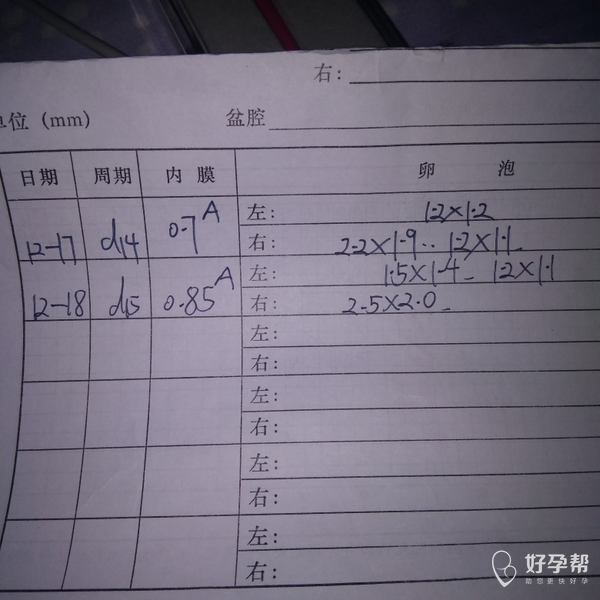 右:
单位 (mm) 盆腔
日期 周期 内膜 卵泡
12-17 d14 0.7A 左: 1.2×1.2
右: 2.2×1.9.. 1.2×1.1
12-18 d15 0.85A 左: 1.5×1.4 1.2×1.1
右: 2.5×2.0
左:
右:
左:
右:
左:
右:
左:
右:
好孕帮
助您更快好孕